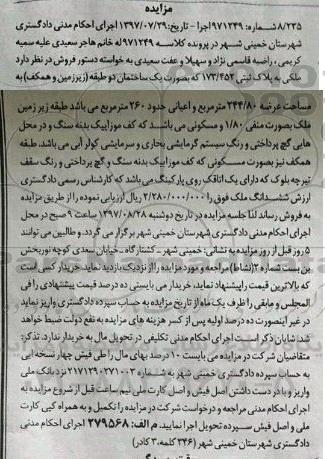 مزایده
۸/۲۳۵ شماره: ۹۷۱۲۴۹اجرا - تاریخ: ۱۳۹۷/۰۷/۲۹ اجرای احکام مدنی دادگستری
شهرستان خمینی شهر در پرونده کلاسه ۹۷۱۲۴۹له خانم هاجر سعیدی علیه سمیه
کریمی ، راضیه قاسمی نژاد و سهیلا و عفت سعیدی به خواسته دستور فروش در نظر دارد
ملکی به پلاک ثبتی ۱۷۳/۴۵۲ که بصورت یک ساختمان دو طبقه (زیرزمین و همکف) به
مساحت عرصه ۲۴۴/۸۰ مترمربع و اعیانی حدود ۲۶۰ مترمربع می باشد طبقه زیر زمین
ملک بصورت منفی ۱/۸۰ و مسکونی می باشند که کف موزاییک بدنه سنگ و در محل
هایی گچ پرداختی و رنگ سیستم گرمایشی بخاری و سرمایشی کولر آبی می باشد. طبقه
همکف نیز بصورت مسکونی که کف موزاییک بدنه سنگ و گچ پرداختی و رنگ سقف
تیرچه بلوک که دارای یک اتاقک روی پارکینگ می باشد که کارشناس رسمی دادگستری
ارزش ششدانگ ملک فوق را ۲/۲۸۰/۰۰۰/۰۰۰ ریال ارزیابی نموده را از طریق مزایده
به فروش رساند لذا جلسه مزایده در تاریخ دوشنبه ۱۳۹۷/۰۸/۲۸ ساعت ۹ صبح در محل
اجرای احکام مدنی دادگستری شهرستان خمینی شهر برگزار می گردد. و طالبین می توانند
۵ روز قبل از روز مزایده به نشانی: خمینی شهر ـ کشتارگاه ـ خیابان سعدی کوچه نوربخش
بن بست شماره ۳(نشاط) مراجعه و مورد مزایده را از نزدیک بازدید نماید. خریدار کسی است
که بالاترین قیمت را پیشنهاد نماید، خریدار می بایستی ده درصد قیمت پیشنهادی را فی
المجلس و مابقی را ظرف یک ماه از تاریخ مزایده به حساب سپرده دادگستری واریز نماید
در غیر اینصورت ده درصد اولیه پس از کسر هزینه های مزایده به نفع دولت ضبط خواهد
شد. شایان ذکر است اجرای احکام مدنی تکلیفی در تحویل مال به خریدار ندارد. تذکر:
متقاضیان شرکت در مزایده می بایست ۱۰ درصد بهای مال را طی فیش چهار نسخه ایی
به حساب سپرده دادگستری خمینی شهر به شماره ۲۱۷۱۲۹۰۲۷۱۰۰۳ نزد بانک ملی
واریز و با در دست داشتن اصل فیش و اصل کارت ملی نیم ساعت قبل از شروع مزایده به
اجرای احکام مدنی مراجعه و درخواست شرکت در مزایده را تکمیل و به همراه کپی کارت
ملی و اصل فیش سپرده تحویل اجرا نمایید. م الف: ۲۷۹۵۶۸ اجرای احکام مدنی
دادگستری شهرستان خمینی شهر (۳۴۶ کلمه،۳ کادر)